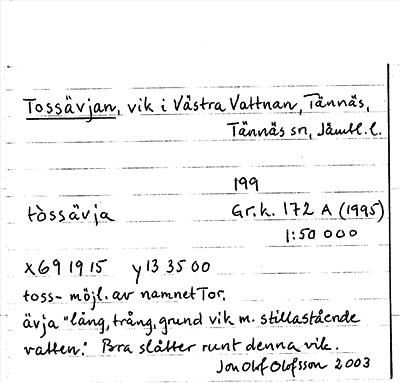 Tossävjan, vik i Västra Vattnan, Tännäs,
Tännäs sn, Jämtl. l.
199
tòssävja Gr. k. 172 A (1995)
1:50 000
x69 19 15 y13 35 00
toss- möjl. av namnet Tor.
ävja "lång, trång, grund vik m. stillastående
vatten." Bra slåtter runt denna vik.
Jon Olof Olofsson 2003